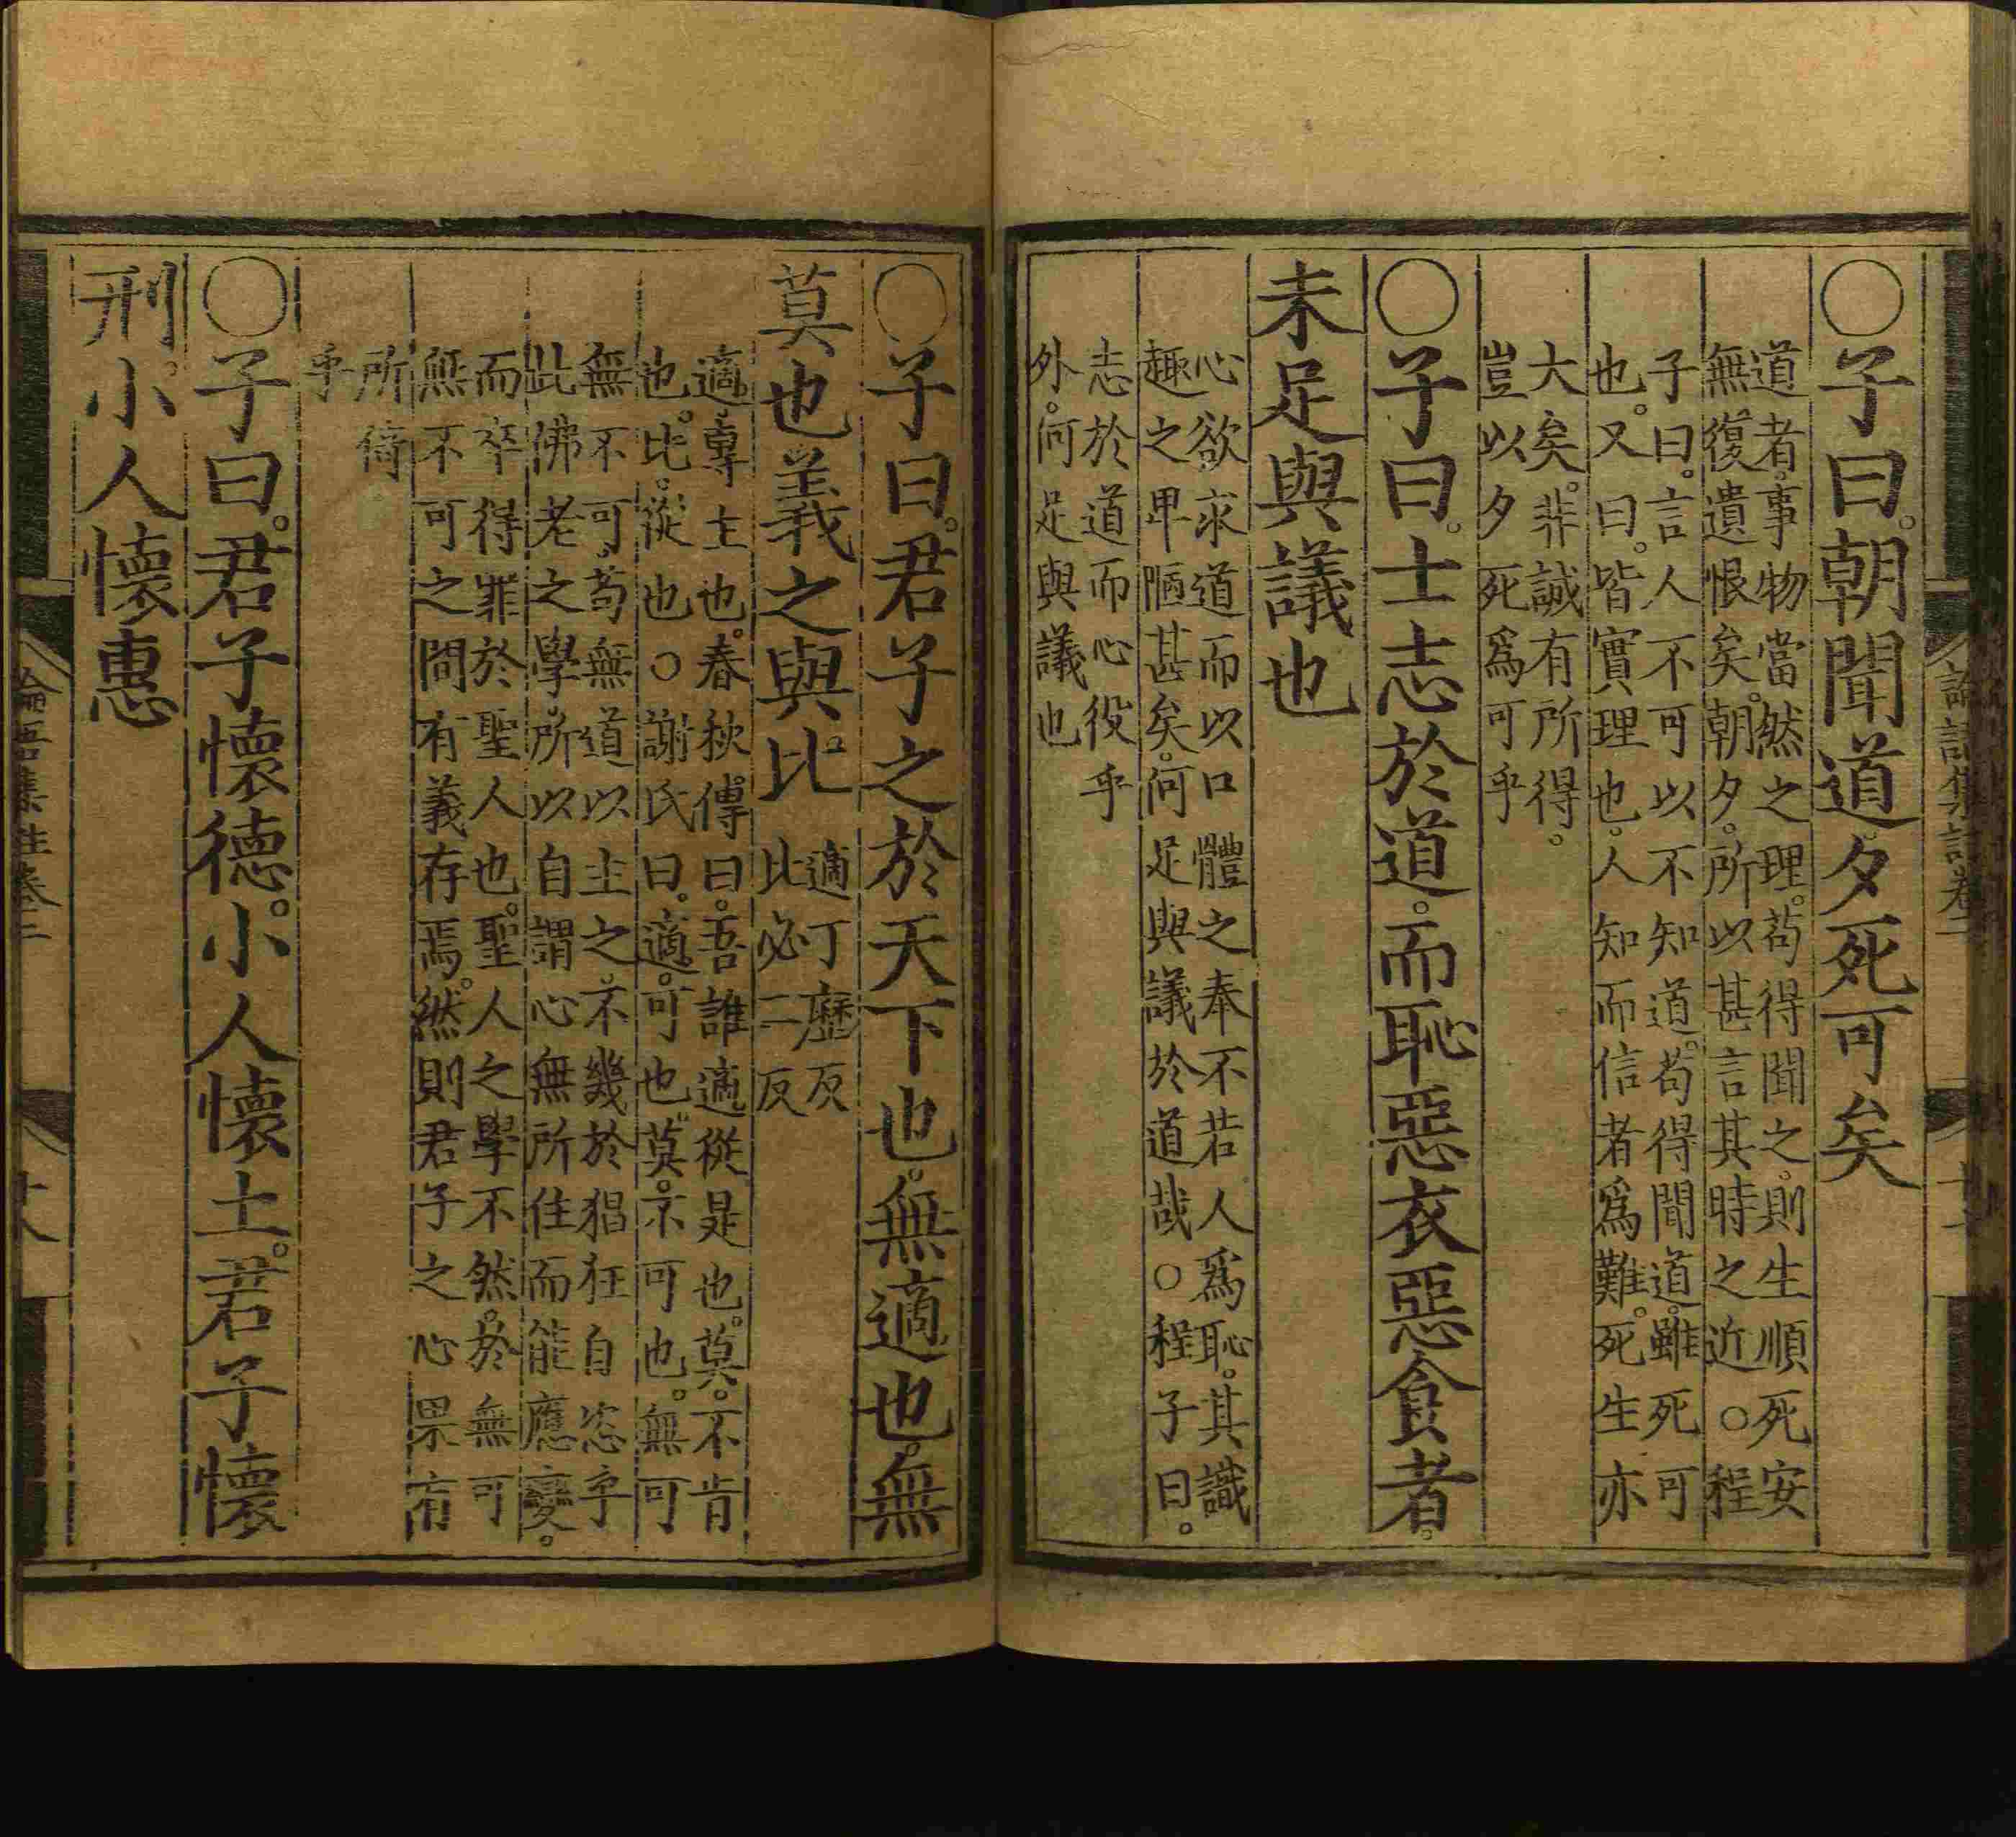 論語集註卷二
○子曰。朝聞道。夕死可矣
道者。事物當然之理。苟得聞之。則生順死安
無復遺恨矣。朝夕。所以甚言其時之近○程
子曰。言人不可以不知道。苟得聞道。雖死可
也。又曰。皆實理也。人知而信者爲難。死生亦
大矣。非誠有所得。
豈以夕死爲可乎
○子曰。士志於道。而恥惡衣惡食者。
未足與議也
心欲求道而以口體之奉不若人爲恥。其識
趣之卑陋甚矣。何足與議於道哉○程子曰。
志於道而心役乎
外。何足與議也
○子曰。君子之於天下也。無適也。無
莫也。義之與比。
適丁歷反
比必二反
適。專主也。春秋傳曰。吾誰適從是也。莫。不肯
也。比。從也○謝氏曰。適。可也。莫。不可也。無可
無不可。苟無道以主之。不幾於猖狂自恣乎
此佛老之學。所以自謂心無所住而能應變。
而卒得罪於聖人也。聖人之學不然。於無可
無不可之間有義存焉。然則君子之心果有
所倚
乎
○子曰。君子懷德。小人懷土。君子懷
刑。小人懷惠
論語集註卷二
十八